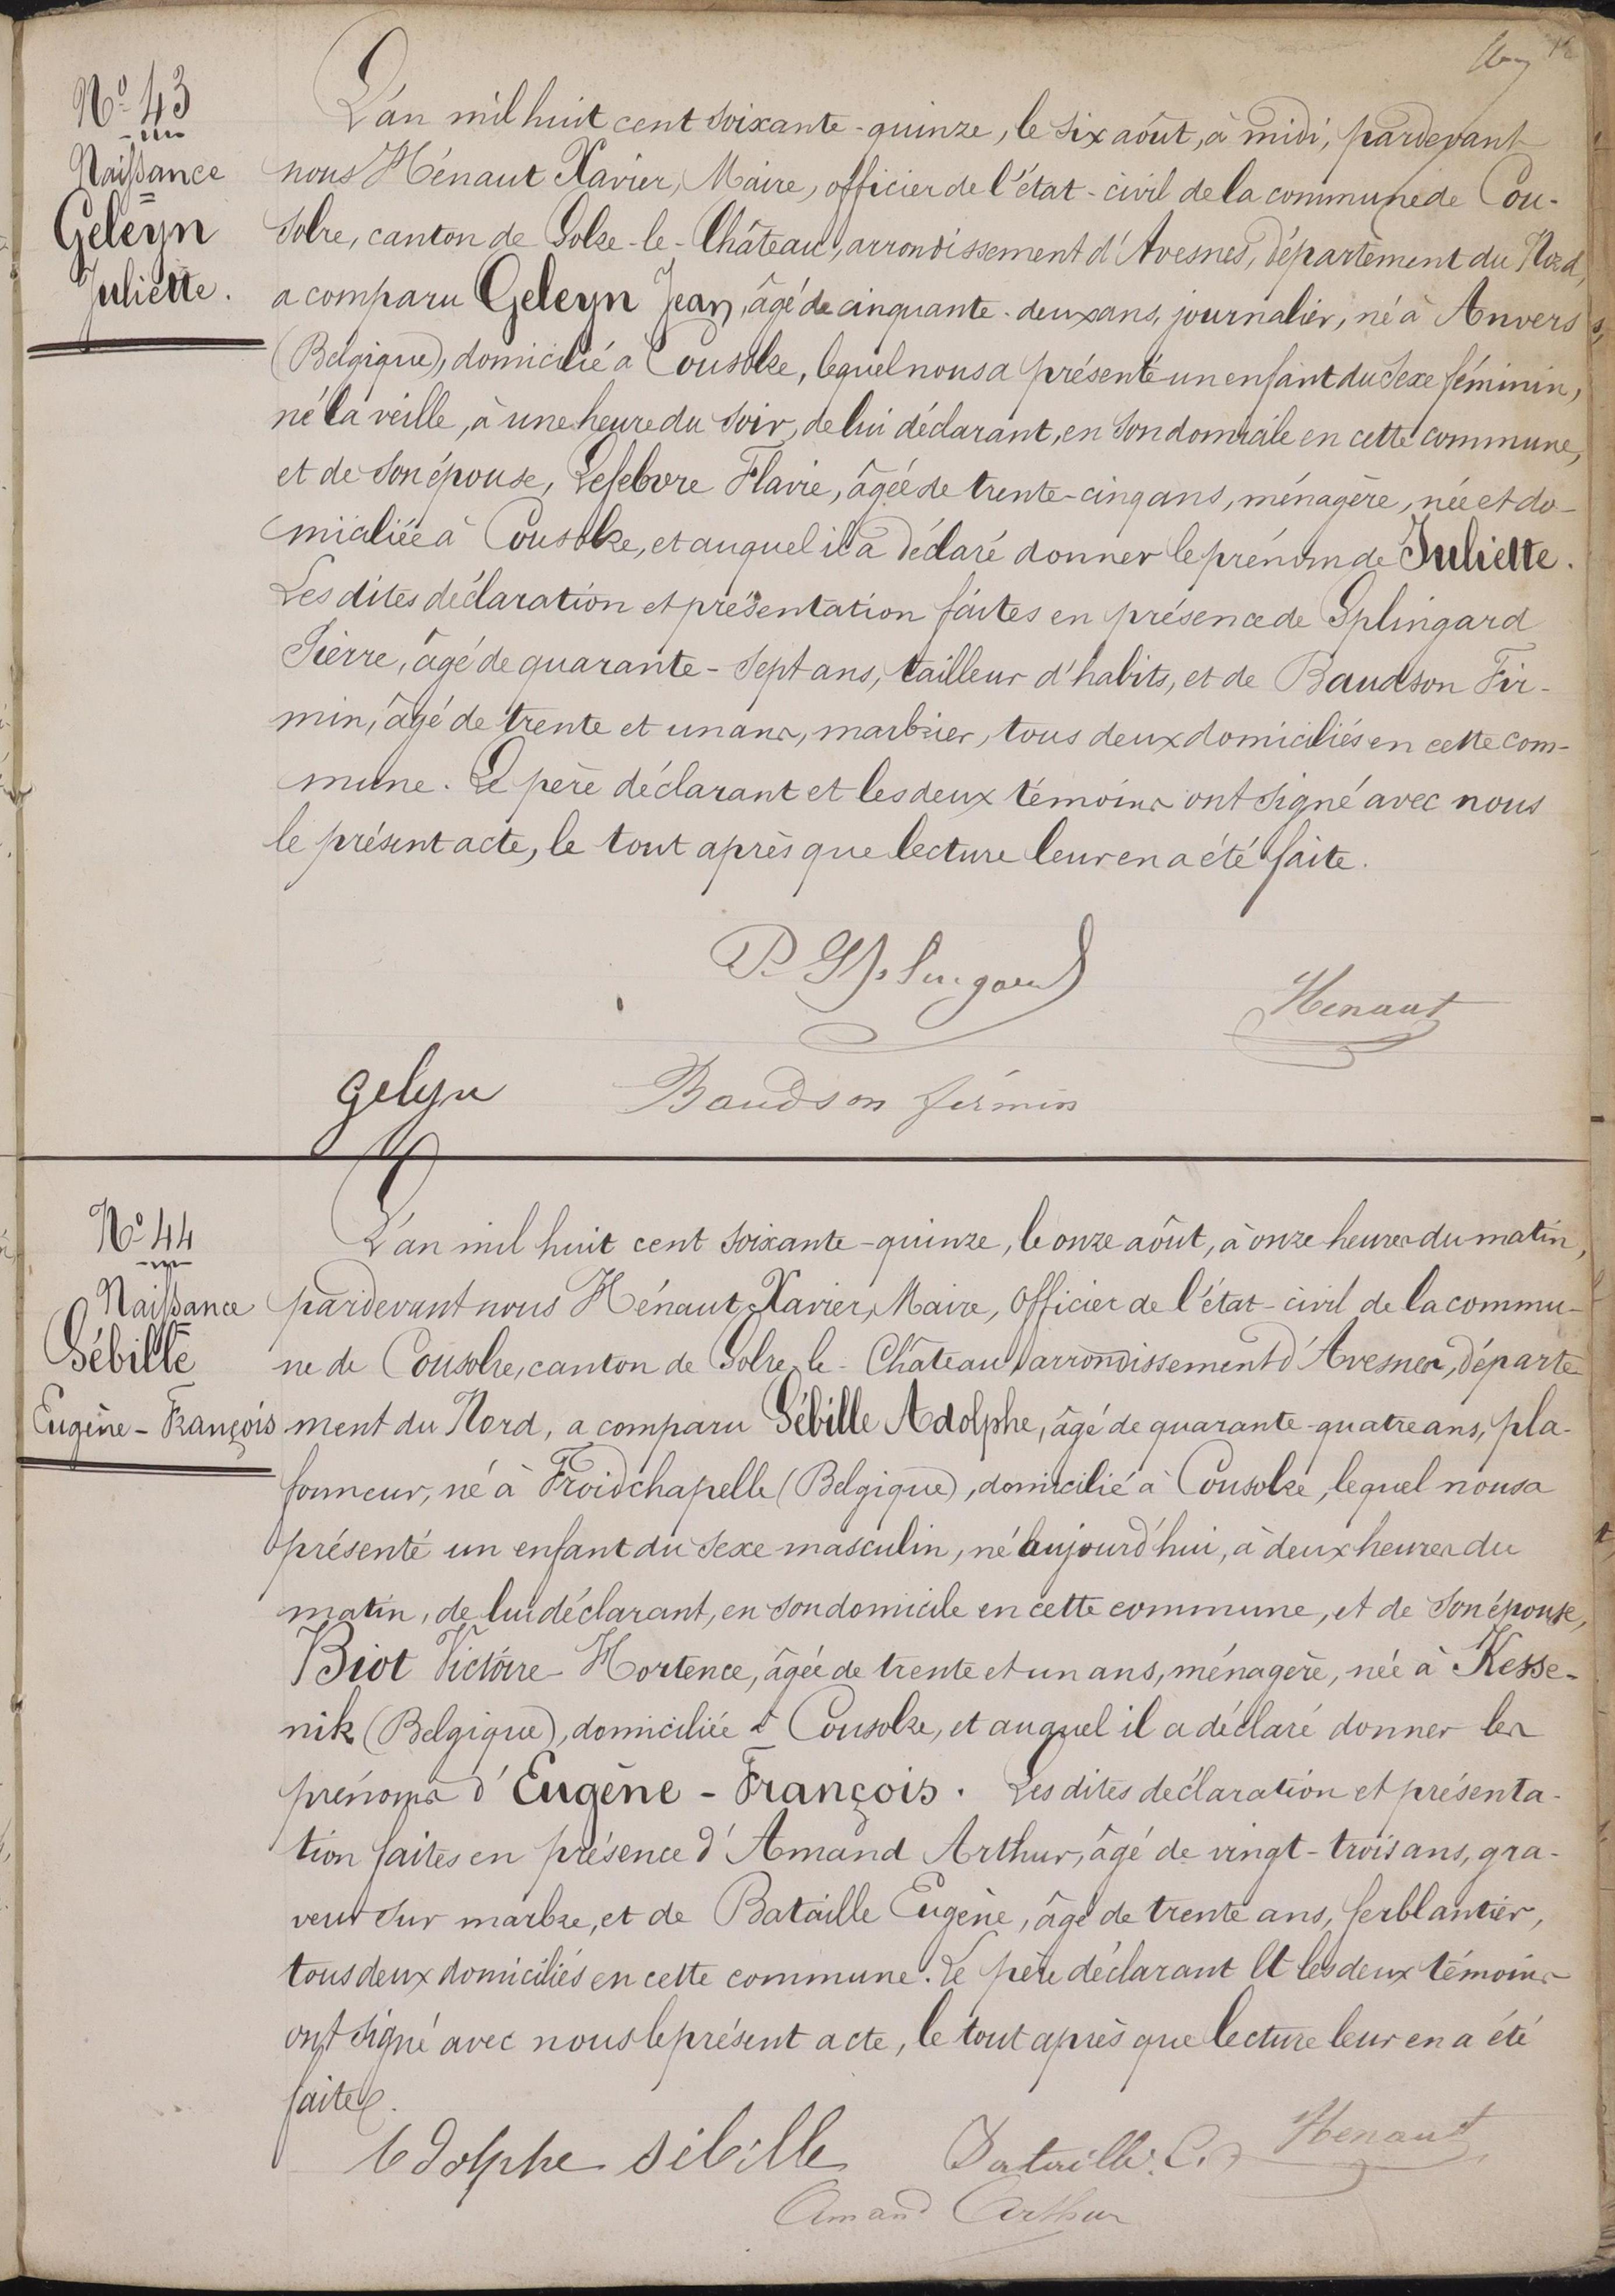 N° 43
Naissance
Geleyn
Juliette.
L'an mil huit cent soixante-quinze, le six août, à midi, pardevant
nous Hénaut Xavier, Maire, officier de l'état-civil de la commune de Cou-
solre, canton de Solre-le-Château, arrondissement d'Avesnes, département du Nord,
a comparu Geleyn Jean, âgé de cinquante-deux ans, journalier, né à Anvers
(Belgique), domicilié à Cousolre, lequel nous a présenté un enfant du sexe féminin,
né la veille, à une heure du soir, de lui déclarant, en son domicile en cette commune,
et de son épouse, Lefebvre Flavie, âgée de trente-cinq ans, ménagère, née et do-
miciliée à Cousolre, et auquel il a déclaré donner le prénom de Juliette.
Les dites déclaration et présentation faites en présence de Splingard
Pierre, âgé de quarante-sept ans, tailleur d'habits, et de Baudson Fir-
min, âgé de trente et un ans, marbrier, tous deux domiciliés en cette com-
mune. Le père déclarant et les deux témoins ont signé avec nous
le présent acte, le tout après que lecture leur en a été faite.
P. Splingard
Henaut
gelyn
Baudson firmin
N° 44
Naissance
Sébille
Eugène-François
L'an mil huit cent soixante-quinze, le onze août, à onze heures du matin,
pardevant nous Hénaut Xavier, Maire, officier de l'état-civil de la commu-
ne de Cousolre, canton de Solre-le-Château, arrondissement d'Avesnes, départe-
ment du Nord, a comparu Sébille Adolphe, âgé de quarante-quatre ans, pla-
fonneur, né à Froidchapelle (Belgique), domicilié à Cousolre, lequel nous a
présenté un enfant du sexe masculin, né aujourd'hui, à deux heures du
matin, de lui déclarant, en son domicile en cette commune, et de son épouse,
Biot Victoire-Hortence, âgée de trente et un ans, ménagère, née à Kesse-
nik (Belgique), domiciliée à Cousolre, et auquel il a déclaré donner les
prénoms d'Eugène-François. Les dites déclaration et présenta-
tion faites en présence d'Amand Arthur, âgé de vingt-trois ans, gra-
veur sur marbre, et de Bataille Eugène, âgé de trente ans, ferblantier,
tous deux domiciliés en cette commune. Le père déclarant et les deux témoins
ont signé avec nous le présent acte, le tout après que lecture leur en a été
faite.
Adolphe sébille
Bataille. E.
Henaut
Amand Arthur